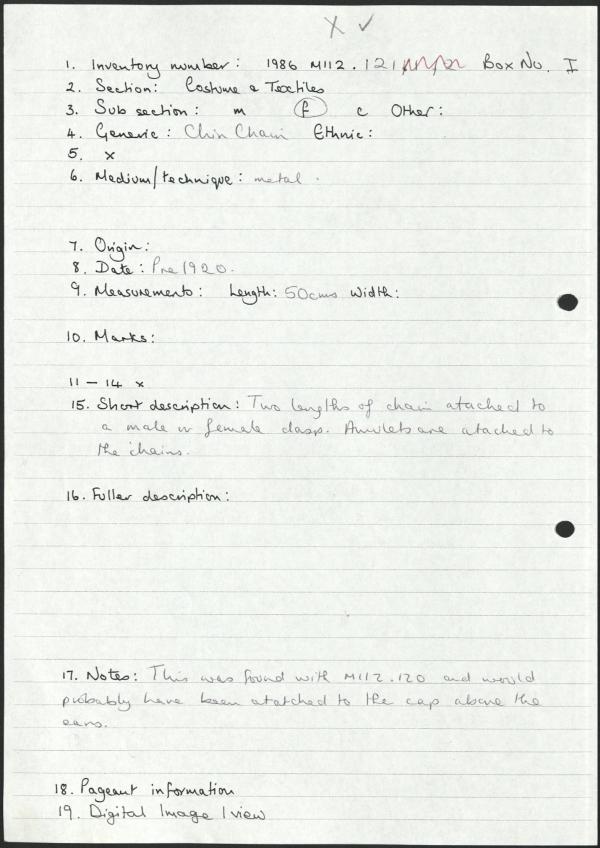 x ✓
1. Inventory number: 1986 M112.121 Box No. I
2. Section: Costume & Textiles
3. Sub section: m f c Other:
4. Generic: Chin Chain Ethnic:
5. x
6. Medium/technique: metal.
7. Origin:
8. Date: Pre 1920.
9. Measurements: Length: 50cms Width:
10. Marks:
11 - 14 x
15. Short description: Two lengths of chain atached to
a male or female clasp. Amulets are atached to
the chains.
16. Fuller description:
17. Notes: This was found with M112.120 and would
probably have been atatched to the cap above the
ears.
18. Pageant information
19. Digital Image 1 view